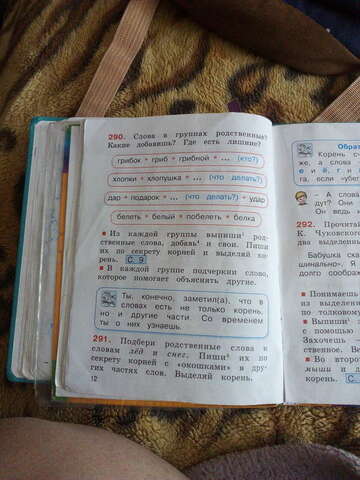 290. Слова в группах родственные?
Какие добавишь? Где есть лишние?
грибок • гриб • грибной • ... (кто?)
хлопки • хлопушка • ... (что делать?)
дар • подарок • ... (что делать?) • удар
белеть • белый • побелеть • белка
■ Из каждой группы выпиши¹ род-
ственные слова, добавь¹ и свои. Пиши
их по секрету корней и выделяй ко-
рень. С. 9
■ В каждой группе подчеркни слово,
которое помогает объяснить другие.
Ты, конечно, заметил(а), что в
словах есть не только корень,
но и другие части. Со временем
ты о них узнаешь.
291. Подбери родственные слова к
словам лёд и снег. Пиши¹ их по
секрету корней с «окошками» в дру-
гих частях слов. Выделяй корень.
12
Обрат
Корень с
же, а слова
е и ё, г и
га, если «убе
– А слова
дут? Они
Он ведь
292. Прочитай
К. Чуковского
два выделенн
Бабушка ска
шинально». Я
долго сообража
■ Понимаешь
из выделенн
по толковому
■ Выпиши¹
с помощью
Захочешь
ственное. Ве
■ Во второ
мыши и д
корень. С.